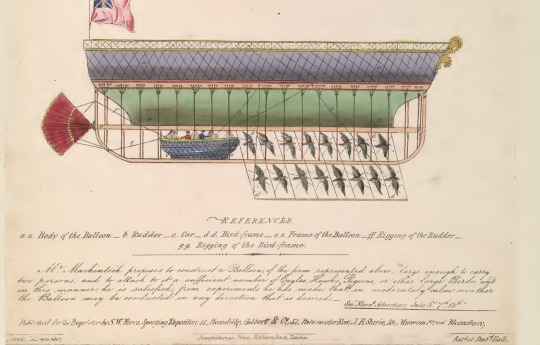 REFERENCES.
a.a. Body of the Balloon _ b. Rudder _ c. Car _ d.d. Bird-frame _ e.e. Frame of the Balloon _ ff. Rigging of the Rudder _
g.g. Rigging of the Bird-frame.
Mr. Mackintosh proposes to construct a Balloon, of the form represented above, large enough to carry
two persons, and to attach to it a sufficient number of Eagles, Hawks, Pigeons, or other large Birds; and
in this manner he is satisfied, from experiments he has made, that, in moderately calm weather
the Balloon may be conducted in any direction that is desired.
See Morng. Advertiser, July
Published for the Proprietor by S.W. Fores, Sporting Repository, 41, Piccadilly, Colbert & Co. 52, Paternoster Row, J.H. Starie, 59, Museum Street Bloomsbury,
Holborn Bars, London.
Ent. at Statrs. Hall.